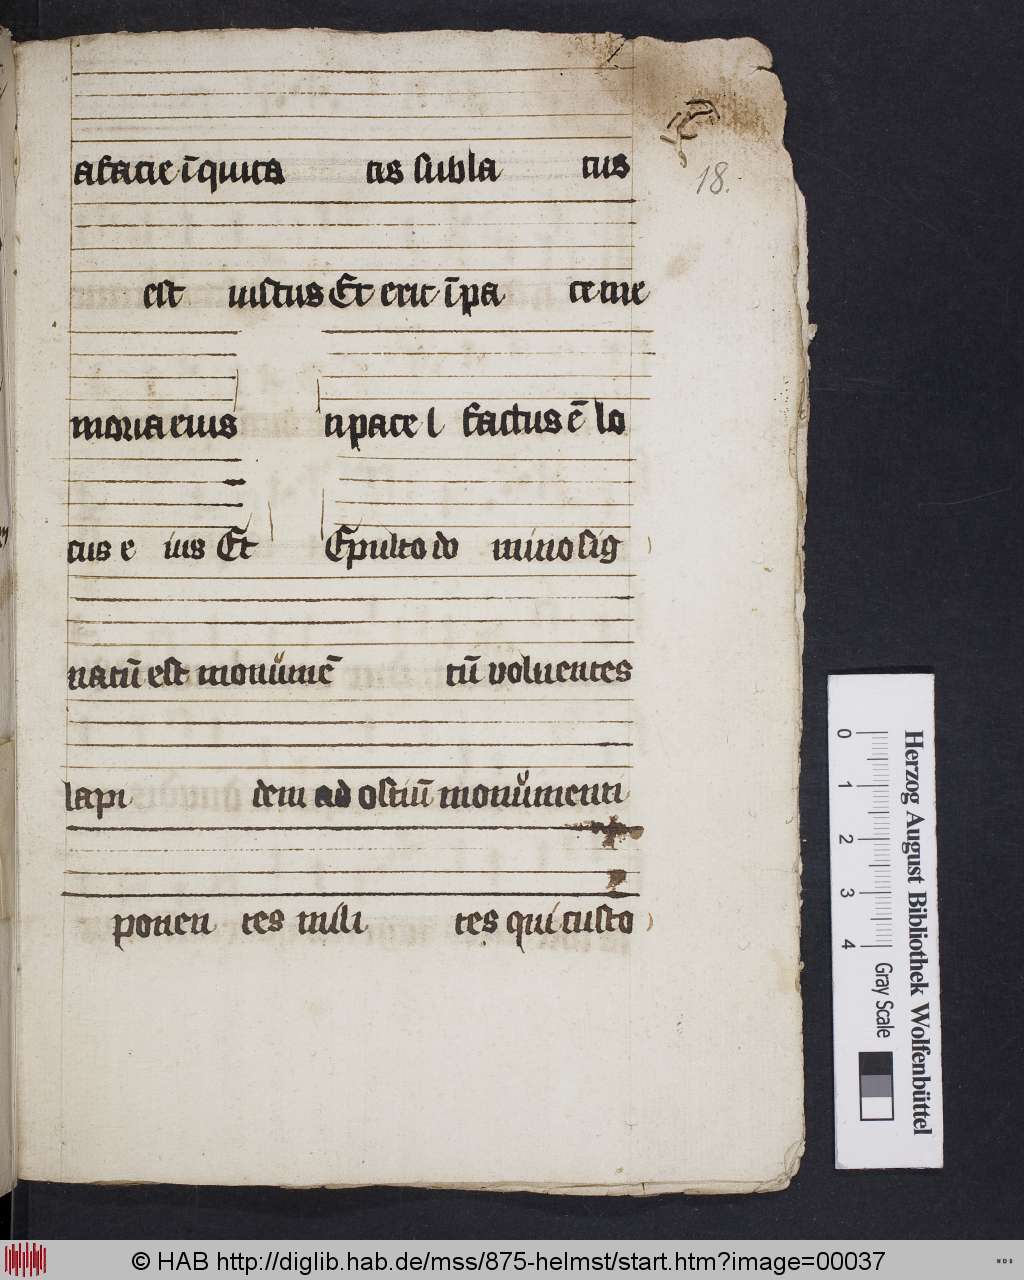 afacie īquita tis subla tus
18.
est iustus Et erit īpa ce me
moria eius n pace l factus ē lo
cus e ius Et Epulto do mino sig
natū est monumē tū voluentes
lapi dem ad ostiū monumenti
ponen tes mili tes qui custo
0 1 2 3 4
Gray Scale
Herzog August Bibliothek Wolfenbüttel
© HAB http://diglib.hab.de/mss/875-helmst/start.htm?image=00037